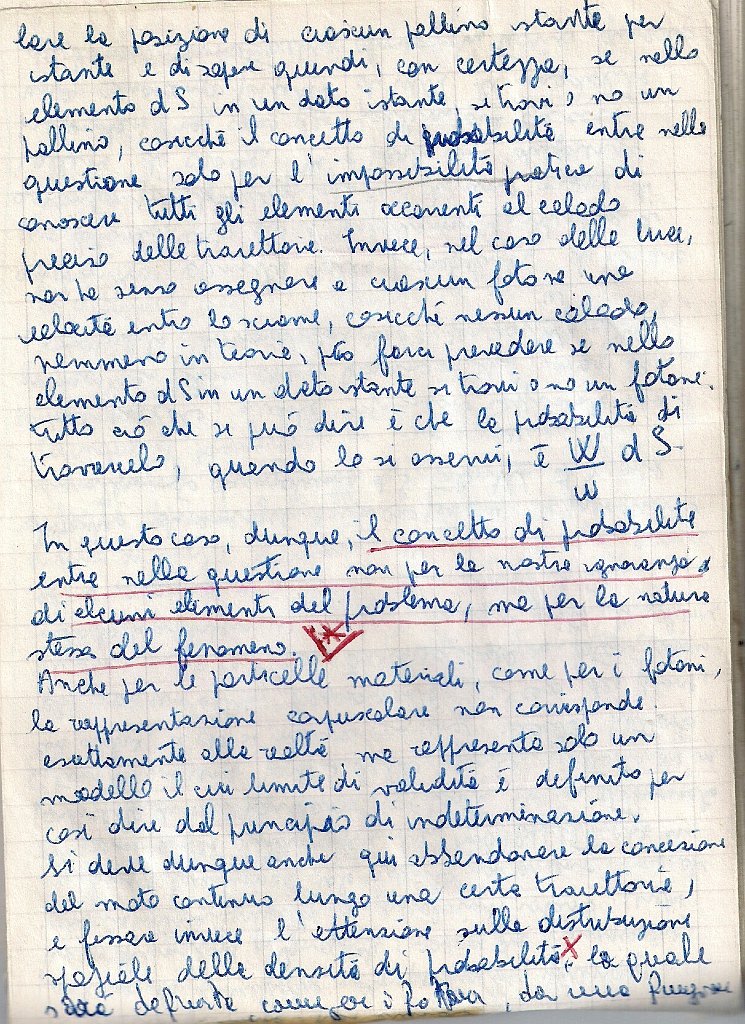 lare la posizione di ciascun pallino istante per
istante e di sapere quindi, con certezza, se nello
elemento dS in un dato istante, si trovi o no un
pallino, cosicché il concetto di probabilità entre nelle
questione solo per l'impossibilità pratica di
conoscere tutti gli elementi occorrenti al calcolo
preciso delle traiettorie. Invece, nel caso della luce,
non ha senso assegnare a ciascun fotone una
velocità entro lo sciame, cosicché nessun calcolo,
nemmeno in teoria, può farci prevedere se nello
elemento dS in un dato istante si trovi o no un fotone.
tutto ciò che si può dire è che la probabilità di
trovarcelo, quando lo si osservi, è W/w dS.
In questo caso, dunque, il concetto di probabilità
entra nella questione non per la nostra ignoranza
di alcuni elementi del problema, ma per la natura
stessa del fenomeno. *
Anche per le particelle materiali, come per i fotoni,
la rappresentazione corpuscolare non corrisponde
esattamente alla realtà, ma rappresenta solo un
modello il cui limite di validità è definito per
così dire dal principio di indeterminazione.
Si deve dunque anche qui abbandonare la concezione
del moto continuo lungo una certa traiettoria,
e fissare invece l'attenzione sulla distribuzione
spaziale della densità di probabilità x, la quale
sarà definita, come per i fotoni, da una funzione